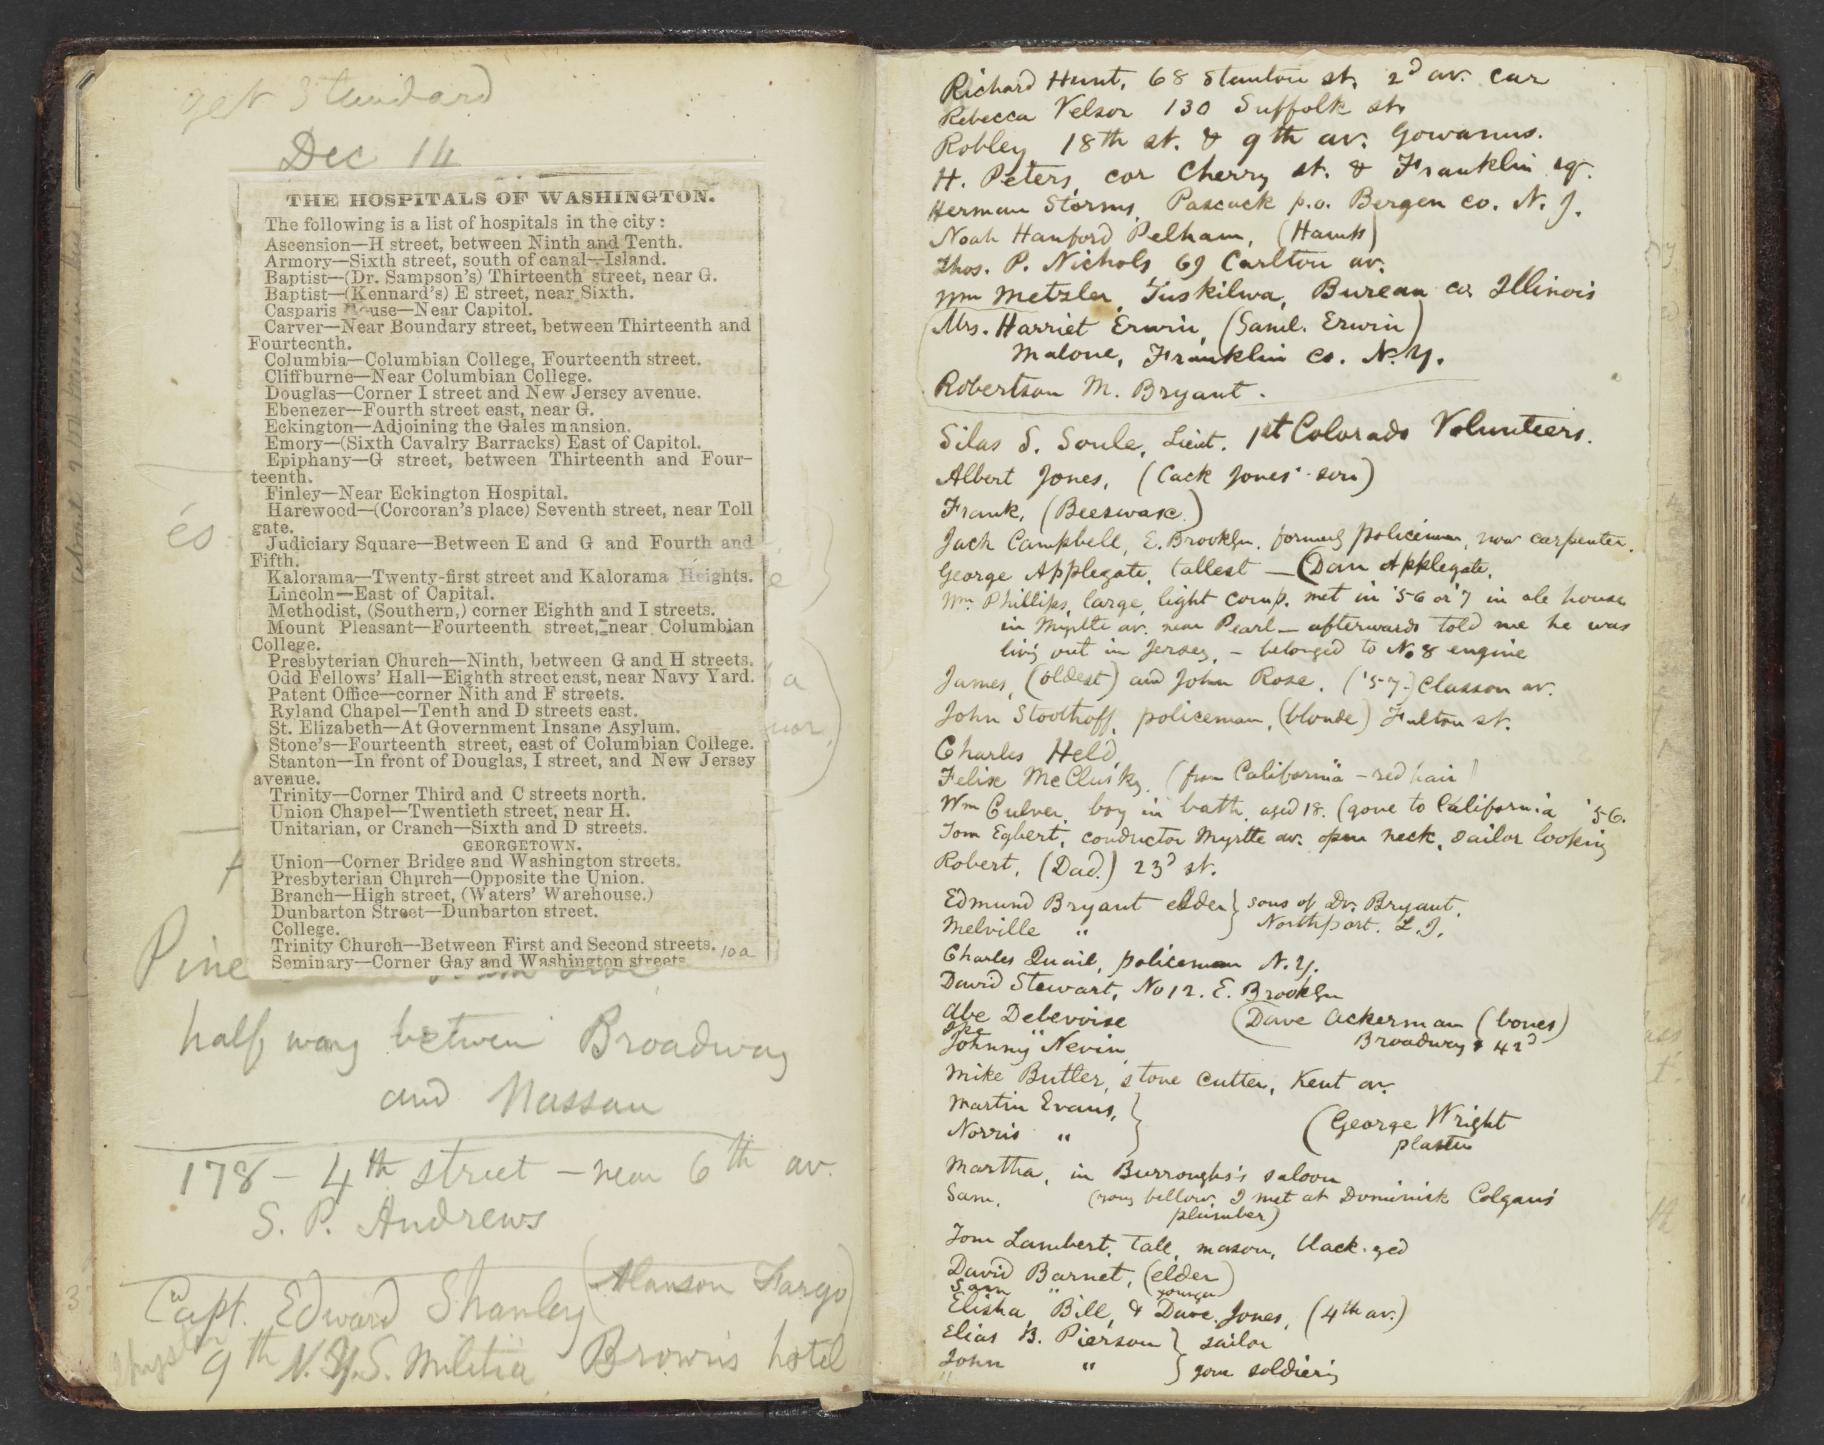 get Standard
Dec 14
THE HOSPITALS OF WASHINGTON.
The following is a list of hospitals in the city:
Ascension—H street, between Ninth and Tenth.
Armory—Sixth street, south of canal—Island.
Baptist—(Dr. Sampson's) Thirteenth street, near G.
Baptist—(Kennard's) E street, near Sixth.
Casparis House—Near Capitol.
Carver—Near Boundary street, between Thirteenth and
Fourteenth.
Columbia—Columbian College, Fourteenth street.
Cliffburne—Near Columbian College.
Douglas—Corner I street and New Jersey avenue.
Ebenezer—Fourth street east, near G.
Eckington—Adjoining the Gales mansion.
Emory—(Sixth Cavalry Barracks) East of Capitol.
Epiphany—G street, between Thirteenth and Four-
teenth.
Finley—Near Eckington Hospital.
Harewood—(Corcoran's place) Seventh street, near Toll
gate.
Judiciary Square—Between E and G and Fourth and
Fifth.
Kalorama—Twenty-first street and Kalorama Heights.
Lincoln—East of Capital.
Methodist, (Southern,) corner Eighth and I streets.
Mount Pleasant—Fourteenth street, near Columbian
College.
Presbyterian Church—Ninth, between G and H streets.
Odd Fellows' Hall—Eighth street east, near Navy Yard.
Patent Office—corner Nith and F streets.
Ryland Chapel—Tenth and D streets east.
St. Elizabeth—At Government Insane Asylum.
Stone's—Fourteenth street, east of Columbian College.
Stanton—In front of Douglas, I street, and New Jersey
avenue.
Trinity—Corner Third and C streets north.
Union Chapel—Twentieth street, near H.
Unitarian, or Cranch—Sixth and D streets.
GEORGETOWN.
Union—Corner Bridge and Washington streets.
Presbyterian Church—Opposite the Union.
Branch—High street, (Waters' Warehouse.)
Dunbarton Street—Dunbarton street.
College.
Trinity Church—Between First and Second streets.
Seminary—Corner Gay and Washington streets
10a
Pine
half way between Broadway
and Nassau
178 – 4th street – near 6th av.
S. P. Andrews
Capt. Edward Shanley (Alanson Fargo)
9th N.Y.S. Militia Brown's hotel
Richard Hunt, 68 Stanton st. 2d av. car
Rebecca Velsor 130 Suffolk st.
Robley 18th st. & 9th av. Gowanus.
H. Peters, cor Cherry st. & Franklin sq.
Herman Storms, Pascack p.o. Bergen co. N.J.
Noah Hanford Pelham, (Hank)
Thos. P. Nichols 69 Carlton av.
Wm Metzler, Tuskilwa, Bureau co Illinois
Mrs. Harriet Erwin, (Saml. Erwin)
Malone, Franklin co. N.Y.
Robertson M. Bryant.
Silas S. Soule, Lieut. 1st Colorado Volunteers.
Albert Jones, (Cack Jones' son)
Frank, (Beeswax)
Jack Campbell, E. Brooklyn, formerly policeman, now carpenter.
George Applegate, tallest — (Dan Applegate,
Wm Phillips, large, light comp. met in '56 or '7 in ale house
in Myrtle av. near Pearl – afterwards told me he was
living out in Jersey, – belonged to No 8 engine
James, (oldest) and John Rose. ('57.) Classon av.
John Stoothoff, policeman, (blonde) Fulton st.
Charles Held,
Felix McClusky, (from California – red hair)
Wm Culver, boy in bath, aged 18. (gone to California '56.
Tom Egbert, conductor Myrtle av. open neck, sailor looking
Robert, (Dad.) 23d st.
Edmund Bryant elder } sons of Dr. Bryant,
Melville " } Northport. L.I.
Charles Quail, policeman N.Y.
David Stewart, No 12. E. Brooklyn
Abe Debevoise (Dave Ackerman (bones)
Ike " Broadway & 42d
Johnny Nevin,
Mike Butler, stone cutter, Kent av.
Martin Evans, }
Norris " } (George Wright
plaster
Martha, in Burroughs's saloon
Sam, (young fellow I met at Dominick Colgan's
plumber)
Tom Lambert, tall, mason, black-eyed
David Barnet, (elder)
Sam " younger
Elisha, Bill, & Dave Jones, (4th av.)
Elias B. Pierson } sailor
John " } gone soldiering